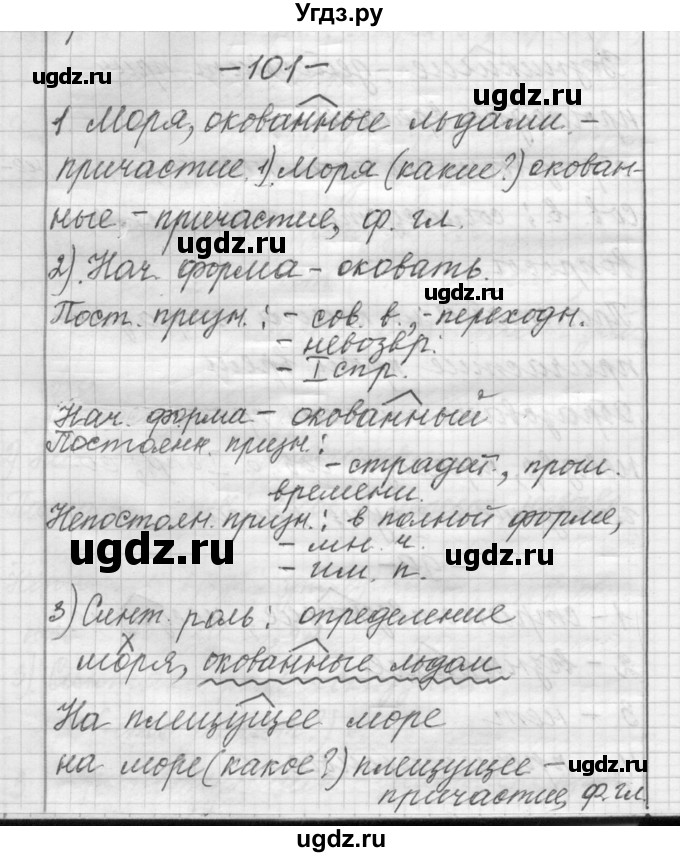 Угдз.ру
- 101 -
ugdz.ru
ugdz.ru
1 Моря, окованные льдами. -
причастие. 1). Моря (какие?) окован-
ные - причастие, ф. гл.
ugdz.ru
2). Нач. форма - оковать.
ugdz.ru
Пост. призн.: - сов. в., - переходн.
- невозвр.
- I спр.
Нач. форма - окованный
Постоянн. призн.:
- страдат., прош.
времени.
Непостоян. призн.: в полной форме,
ugdz.ru
ugdz.ru
- мн. ч.
- им. п.
3) Синт. роль: определение
х
моря, окованные льдам
ugdz.ru
На плещущее море
на море (какое?) плещущее -
ugdz.ru
причастие, ф. гл.
ugdz.ru